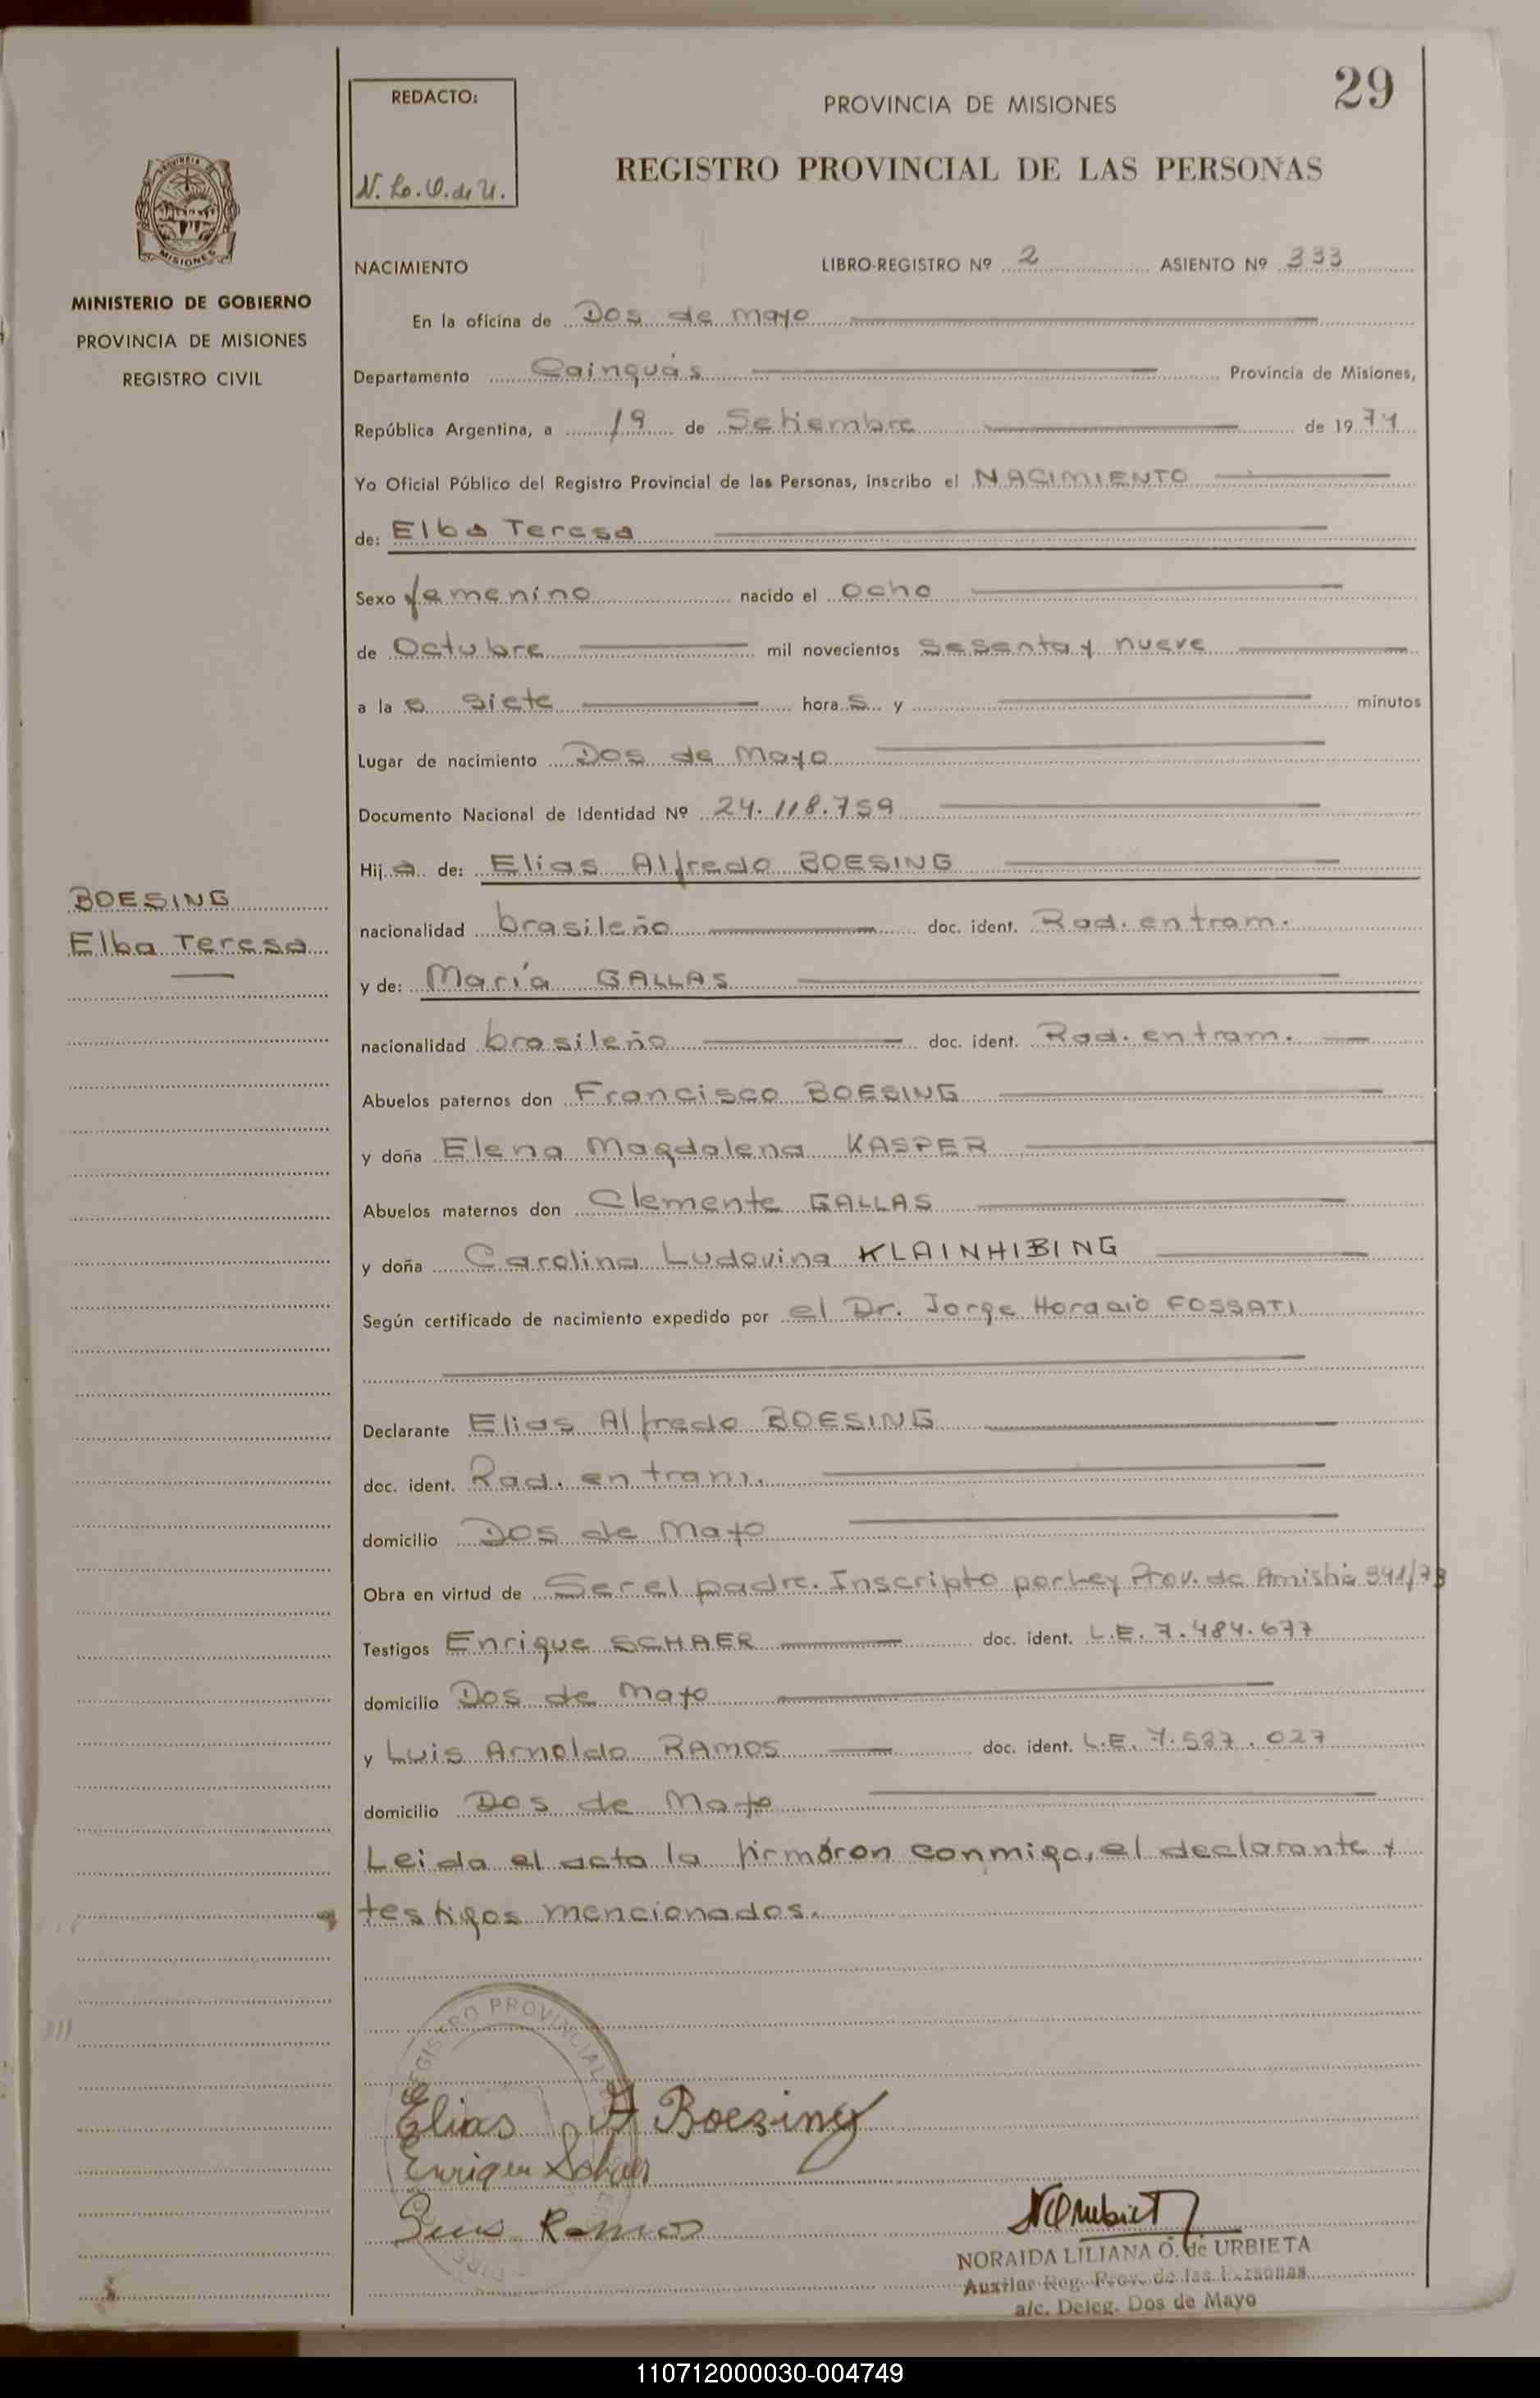 29
REDACTO:
PROVINCIA DE MISIONES
REGISTRO PROVINCIAL DE LAS PERSONAS
PROVINCIA DE
MISIONES
MINISTERIO DE GOBIERNO
PROVINCIA DE MISIONES
REGISTRO CIVIL
NACIMIENTO LIBRO-REGISTRO Nº 2 ASIENTO Nº 333
En la oficina de Dos de Mayo
Departamento Cainguás Provincia de Misiones,
República Argentina, a 19 de Setiembre de 1974
Yo Oficial Público del Registro Provincial de las Personas, inscribo el NACIMIENTO
de: Elba Teresa
Sexo femenino nacido el ocho
de Octubre mil novecientos sesenta y nueve
a la s siete hora s y minutos
Lugar de nacimiento Dos de Mayo
Documento Nacional de Identidad Nº 24.118.759
Hij a de: Elias Alfredo BOESING
BOESING
Elba Teresa
nacionalidad brasileño doc. ident. Rad. en tram.
y de: María GALLAS
nacionalidad brasileño doc. ident. Rad. en tram.
Abuelos paternos don Francisco BOESING
y doña Elena Magdalena KASPER
Abuelos maternos don Clemente GALLAS
y doña Carolina Ludovina KLAINHIBING
Según certificado de nacimiento expedido por el Dr. Jorge Horacio FOSSATI
Declarante Elias Alfredo BOESING
doc. ident. Rad. en tram.
domicilio Dos de Mayo
Obra en virtud de Ser el padre. Inscripto por Ley Prov. de Amistía
Testigos Enrique SCHAER doc. ident. L.E. 7.484.677
domicilio Dos de Mayo
y Luis Arnoldo RAMOS doc. ident. L.E. 7.587.027
domicilio Dos de Mayo
Leida el acta la firmáron conmigo, el declarante y
testigos mencionados.
REGISTRO PROVINCIAL
Elias A Boesing
Enrique Schaer
Luis Ramos
NORAIDA LILIANA O. de URBIETA
Auxiliar Reg. Prov. de las Personas
a/c. Deleg. Dos de Mayo
110712000030-004749